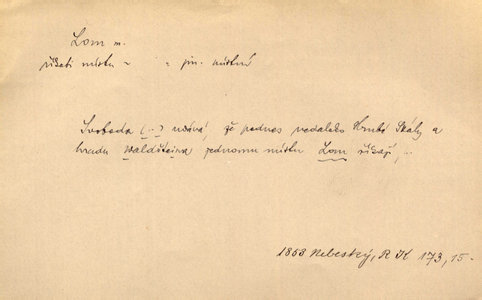 Lom m.
říkati místu - - jm. místní
Svoboda (..) udává, že podnes nedaleko Hrubé Skály a
hradu Waldšteina jednomu místu Lom říkají,
1853 Nebeský, R K 173, 15.